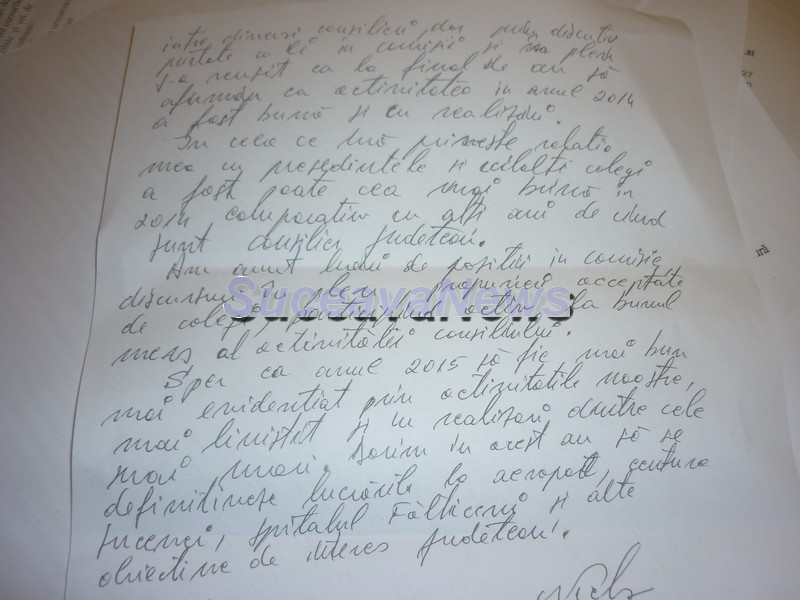 între diverși consilieri dar prin discuții
purtate cu ei în comisii și în plen
s-a reușit ca la final de an să
afirmăm că activitatea în anul 2014
a fost bună și cu realizări.
În ceea ce privește relația
mea cu președintele și ceilalți colegi
a fost poate cea mai bună în
2014 comparativ cu alți ani de când
sunt consilier județean.
Am avut luări de poziții în comisie,
discursuri în plen, propuneri acceptate
de colegi, participând activ la bunul
mers al activității consiliului.
Sper ca anul 2015 să fie mai bun
mai evidențiat prin activitățile noastre,
mai liniștit și cu realizări dintre cele
mai mari. Dorim în acest an să se
definitiveze lucrările la aeroport, centura
Sucevei, spitalul Fălticeni și alte
obiective de interes județean.
SuceavaNews
27